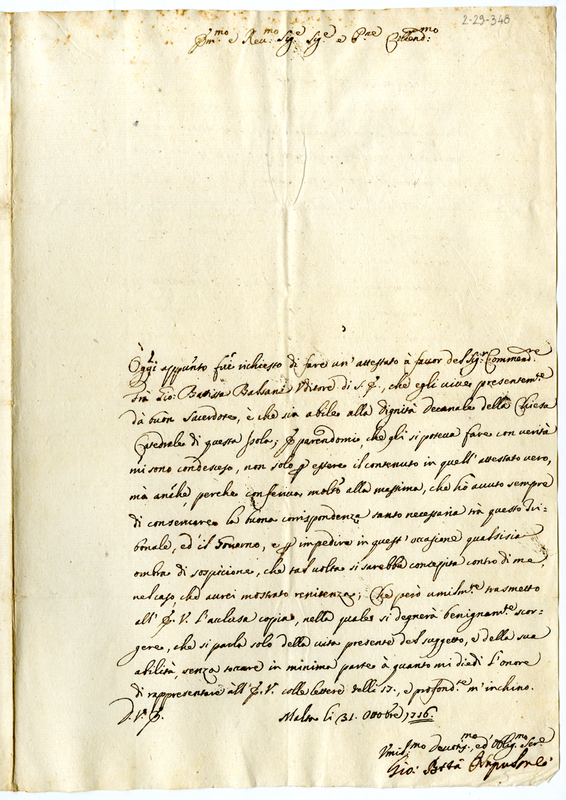 2-29-348
Ill.mo e Rev.mo Sig.re Sig.re e P.ne Colend.mo
Oggi appunto fui richiesto di fare un'attestato à favor del Sig.r Commend.re
frà Gio: Battista Balbani Uditore di S. E., che egli vive presentem.te
dà buon Sacerdote, è che sia abile alla dignità decanale della Chiesa
Catedrale di questa Isola; E parendomi, che gli si poteva fare con verità
mi sono condesceso, non solo p essere il contenuto in quell'attestato vero,
mà anche perche conferiva molto alla massima, che hò avuto sempre
di conservare la buona corrispondenza tanto necessaria trà questo Tri-
bonale, ed il Governo, e p impedire in quest'occasione qualsisia
ombra di sospicione, che tal volta si sarebbe concepita contro di me,
nel caso che avrei mostrato renitenza; Che però umilm.te trasmetto
all'E. V. l'acclusa copia, nella quale si degnerà benignam.te scor-
gere, che si parla solo della vita presente del suggetto, e della sua
abilità, senza toccare in minima parte à quanto mi diedi l'onore
di rappresentare all'E. V. colle lettere delli 17., e profond.te m'inchino.
D. V. E. Malta li 31. Ottobre 1716.
Umil.mo Devotis.mo, ed Oblig.mo Ser.e
Gio: Batta